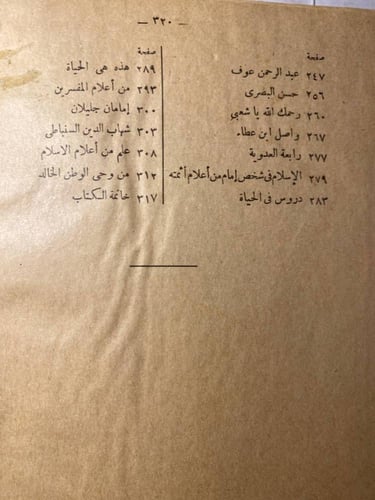 — ٣٢٠ —
صفحة
٢٤٧ عبد الرحمن عوف
٢٥٦ حسن البصرى
٢٦٠ رحمك الله يا شعبي
٢٦٧ واصل ابن عطاء
٢٧٧ رابعة العدوية
٢٧٩ الإسلام فى شخص إمام من أعلام أئمته
٢٨٣ دروس فى الحياة
صفحة
٢٨٩ هذه هى الحياة
٢٩٣ من أعلام المفسرين
٣٠٠ إمامان جليلان
٣٠٣ شهاب الدين السنباطى
٣٠٨ علم من أعلام الاسلام
٣١٢ من وحى الوطن الخالد
٣١٧ خاتمة الكتاب